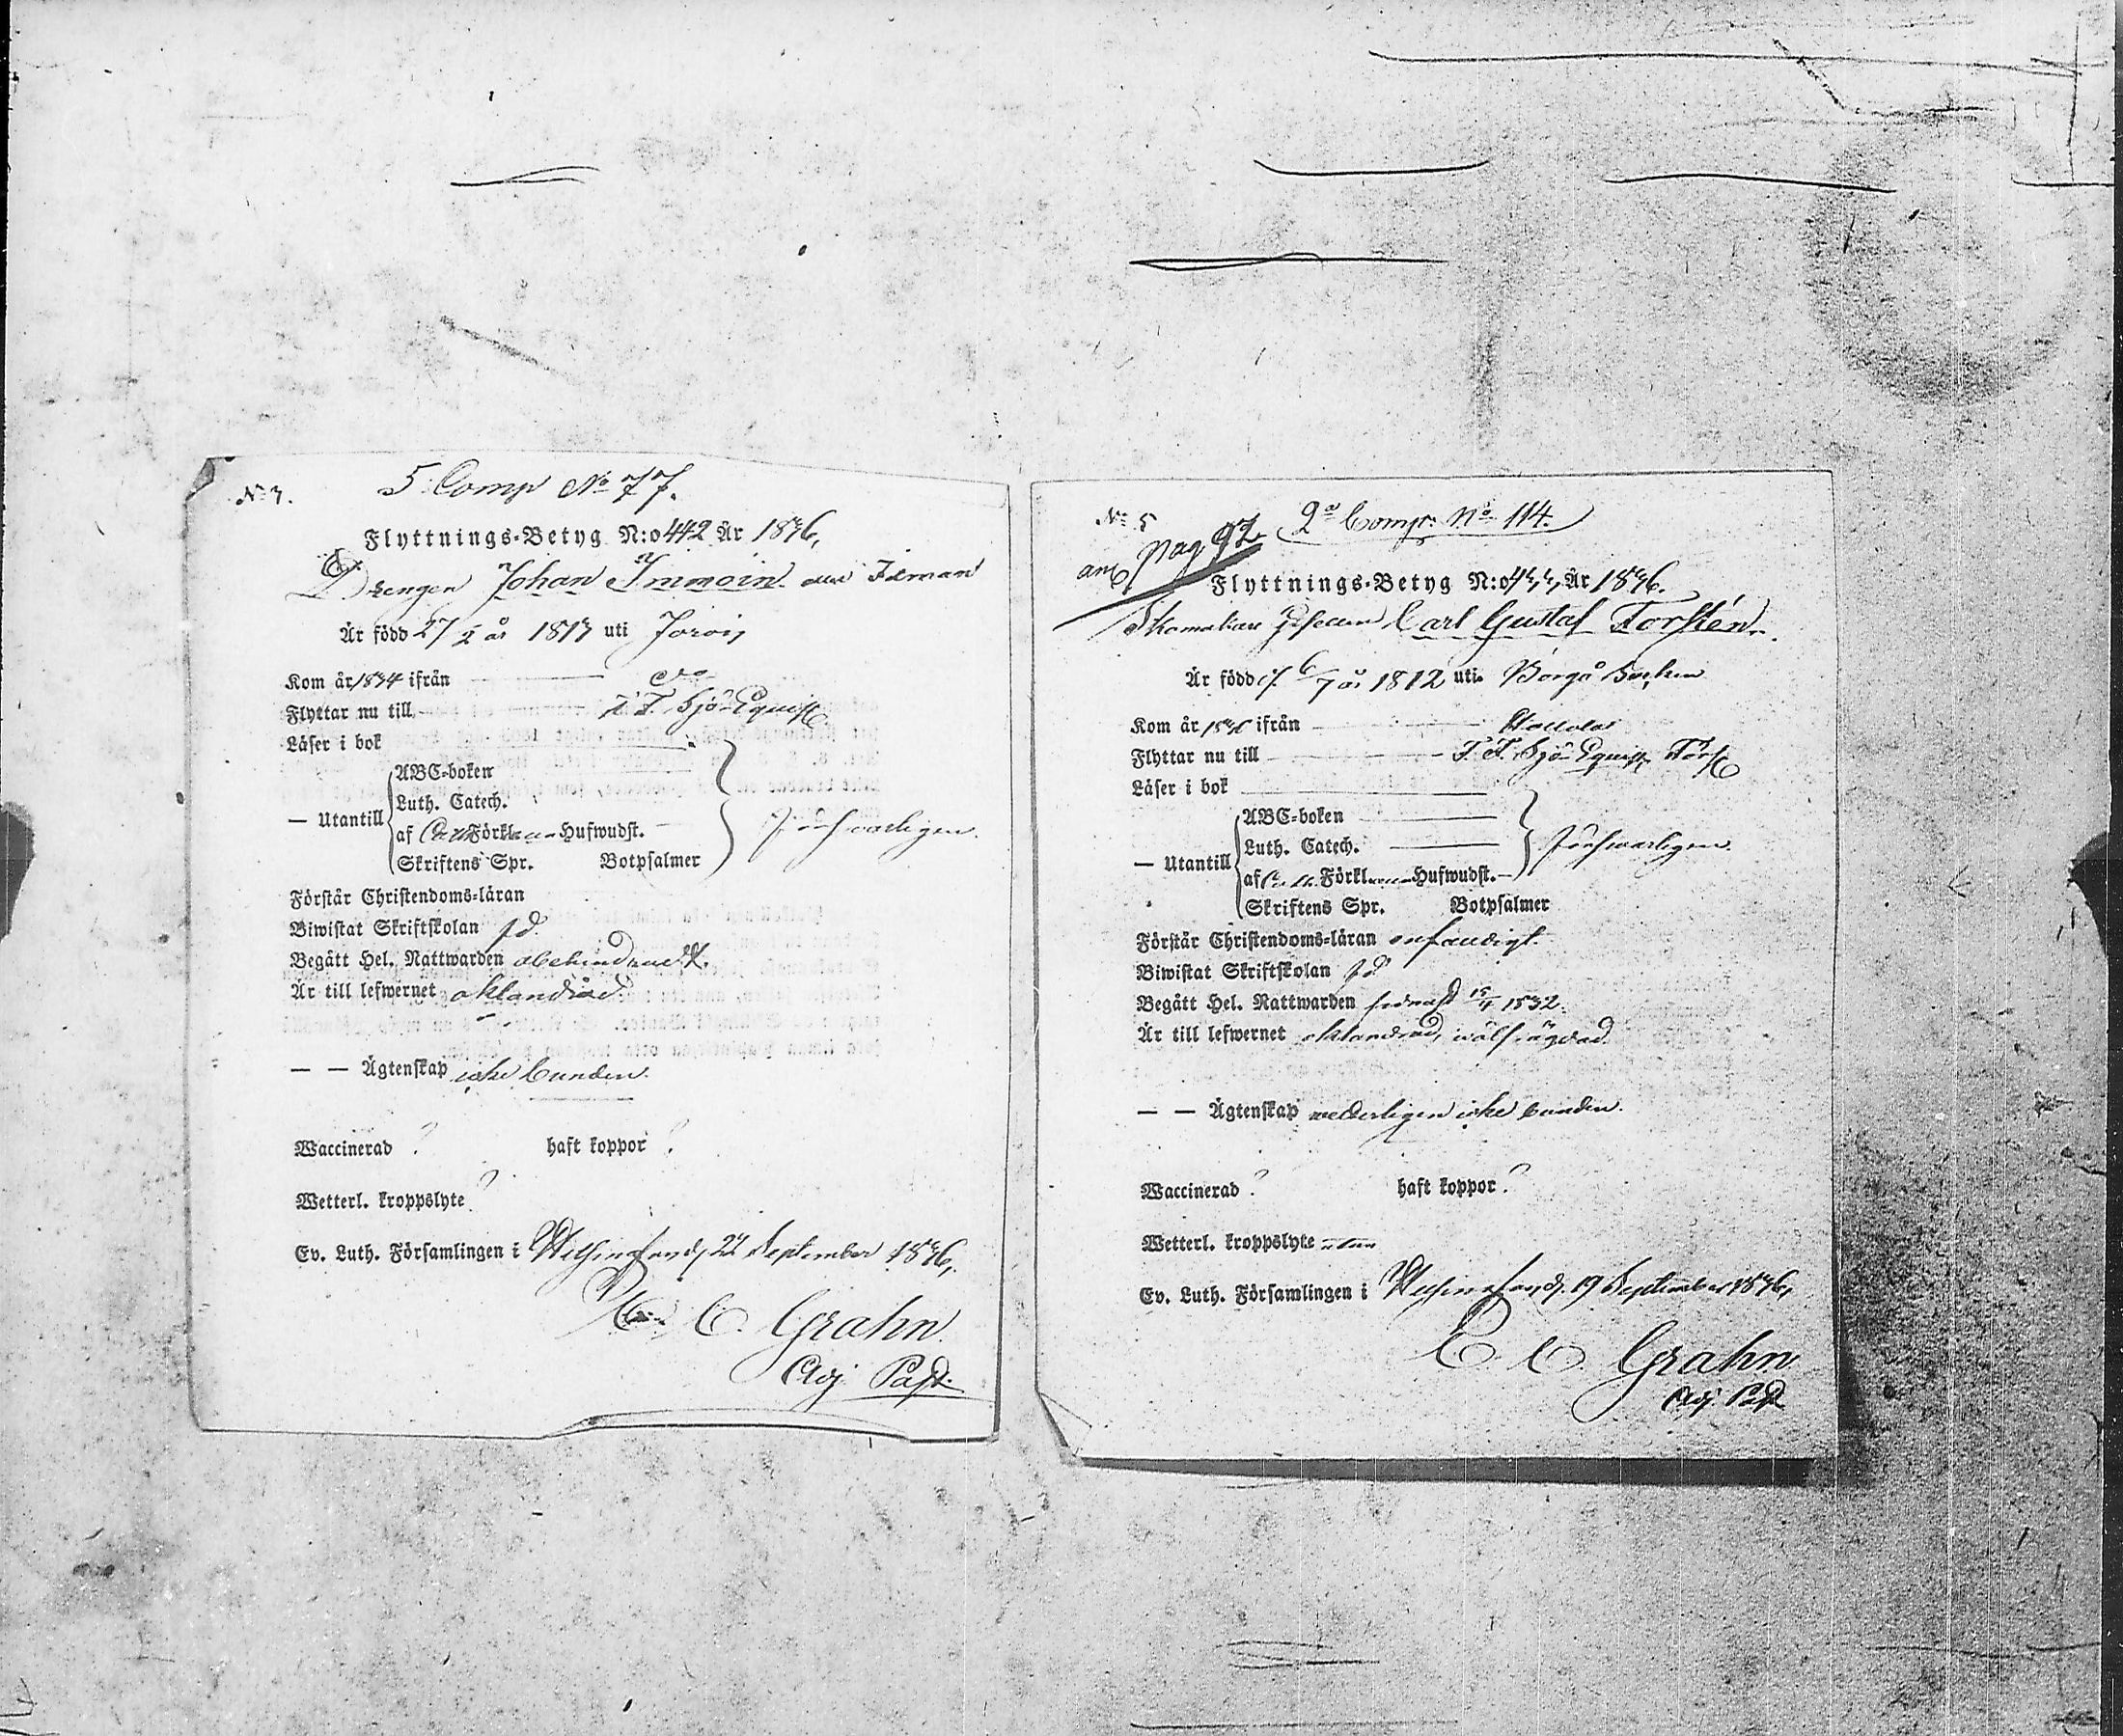 5 Comp No 77.
Flyttnings-Betyg N:o 442 År 1836,
Drengen Johan Immoin
Är född 27/2 år 1813 uti Jorois
Kom år 1834 ifrån
Flyttar nu till F. F. Sjö-Equip.
Läser i bok
— Utantill
ABC-boken
Luth. Catech.
af Förkl Hufwudst.
Skriftens Spr. Botpsalmer
försvarligen.
Förstår Christendoms-läran
Biwistat Skriftskolan jd.
Begått Hel. Nattwarden obehindradt.
Är till lefwernet oklandrad
— — Ägtenskap icke bunden.
Waccinerad ? haft koppor ?
Wetterl. kroppslyte ?
Ev. Luth. Församlingen i Helsingfors, September 1836,
C. Grahn.
Adj. Past.
No 5
pag 92 2a Comp: No 114.
Flyttnings-Betyg N:o År 1836.
Skomakare Gesellen Carl Gustaf Forstén.
Är född d. 6/7 år 1812 uti Borgå Socken
Kom år ifrån Hollola
Flyttar nu till F. F. Sjö-Equip.
Läser i bok
— Utantill
ABC-boken
Luth. Catech.
af Förkl Hufwudst.
Skriftens Spr. Botpsalmer
försvarligen.
Förstår Christendoms-läran
Biwistat Skriftskolan jd
Begått Hel. Nattwarden senast 1832.
Är till lefwernet oklandrad, wälfrägdad.
— — Ägtenskap wetterligen icke bunden.
Waccinerad ? haft koppor ?
Wetterl. kroppslyte utan
Ev. Luth. Församlingen i Helsingfors, d. 19 September 1836,
C. C. Grahn
Adj. Past